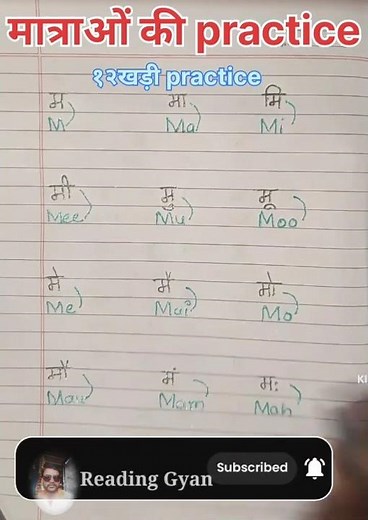 मात्राओं की practice
१२खड़ी practice
म मा मि
M Ma Mi
मी मु मू
Mee Mu Moo
मे मै मो
Me Mai Mo
मौ मं मः
Mau Mam Mah
KI
Reading Gyan Subscribed